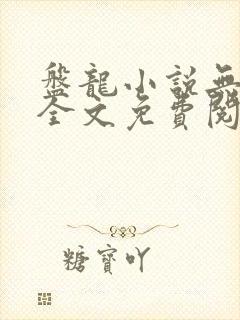 盤龍小說無
全文免費閱
糖寶吖